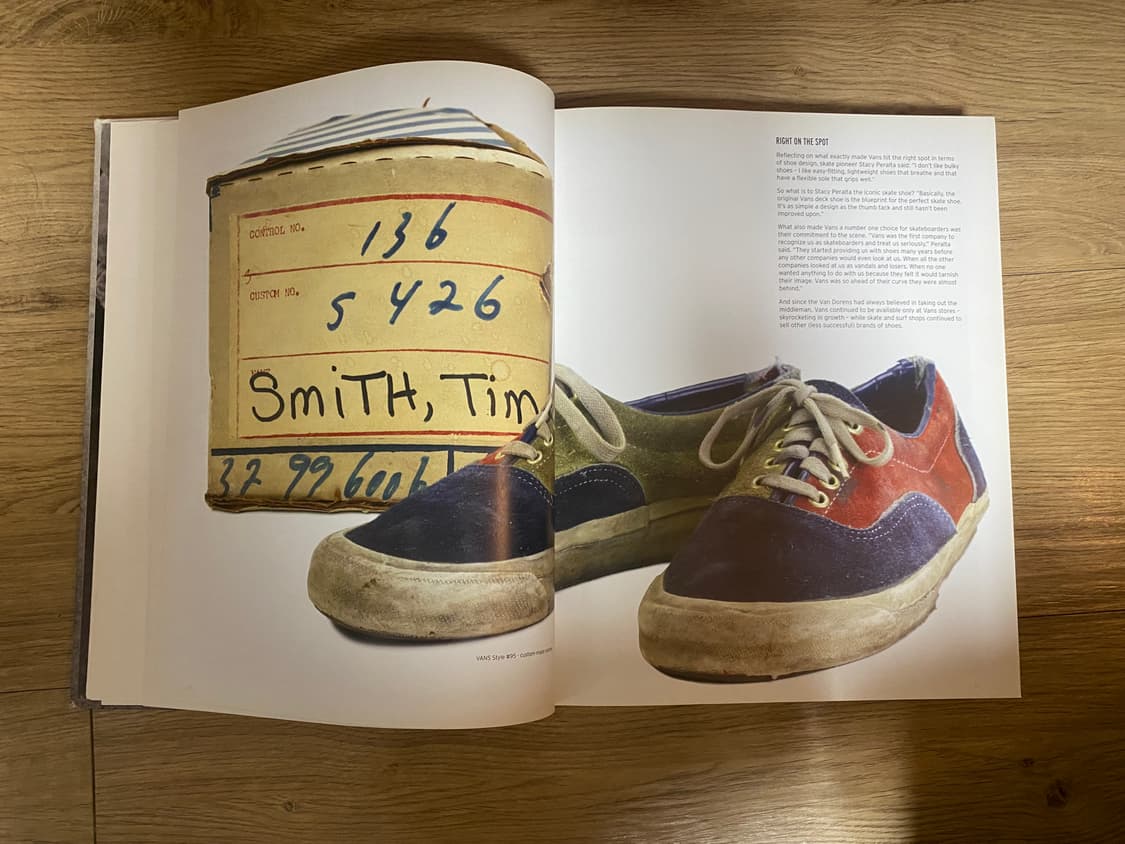 CONTROL NO.
136
CUSTOM NO.
S 426
SMiTH, Tim
32 99 6006
VANS Style #95 - custom-made
RIGHT ON THE SPOT
Reflecting on what exactly made Vans hit the right spot in terms
of shoe design, skate pioneer Stacy Peralta said: "I don't like bulky
shoes – I like easy-fitting, lightweight shoes that breathe and that
have a flexible sole that grips well."
So what is to Stacy Peralta the iconic skate shoe? "Basically, the
original Vans deck shoe is the blueprint for the perfect skate shoe.
It's as simple a design as the thumb tack and still hasn't been
improved upon."
What also made Vans a number one choice for skateboarders was
their commitment to the scene. "Vans was the first company to
recognize us as skateboarders and treat us seriously," Peralta
said. "They started providing us with shoes many years before
any other companies would even look at us. When all the other
companies looked at us as vandals and losers. When no one
wanted anything to do with us because they felt it would tarnish
their image. Vans was so ahead of their curve they were almost
behind."
And since the Van Dorens had always believed in taking out the
middleman, Vans continued to be available only at Vans stores –
skyrocketing in growth – while skate and surf shops continued to
sell other (less successful) brands of shoes.